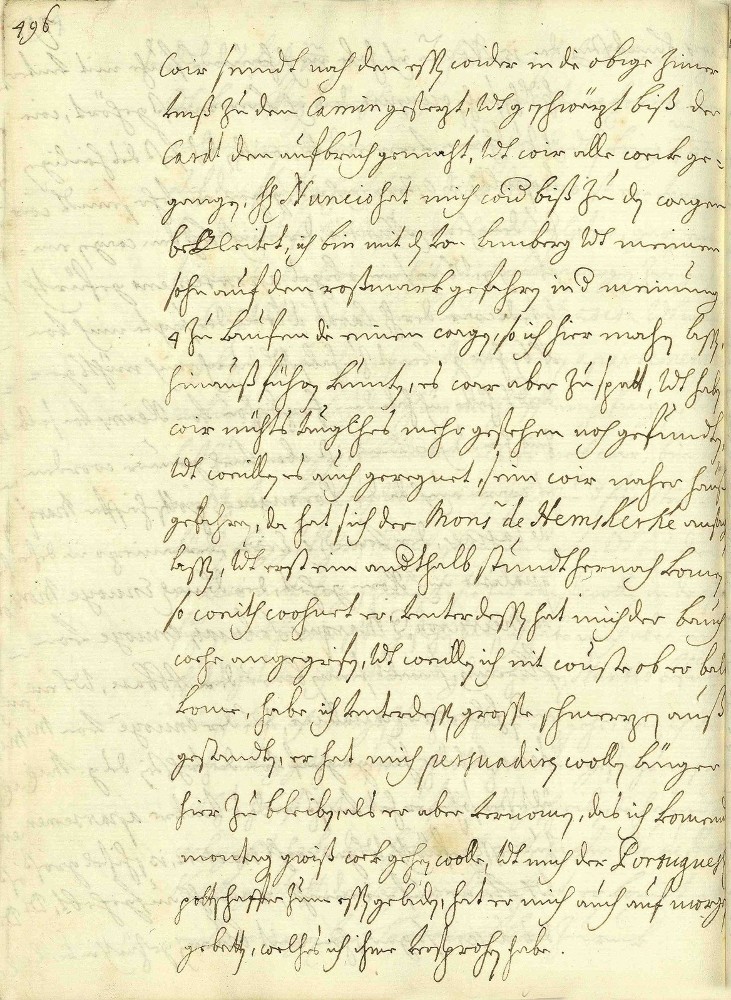 496
wir seindt nach den essen wider in die obige Zimer
unß zu dem Camin gesezt, Vdt geschwäzt biß der
Cardl den aufbruch gemacht, Vdt wir alle weck ge=
gangen, H Nuncio hat mich wid biß zu den wagen
bekleitet, ich bin mit den von Lamberg Vdt meinem
sohn auf den roßmark gefahren in d meinung
4 zu kaufen die einen wagen, so ich hier machen lassen,
hinauß führen kunten, es war aber zu spatt, Vdt haben
wir nichts taugliches mehr gesehen noch gefundten,
Vdt weillen es auch geregnet, sein wir nacher hauß
gefahren, da hat sich der Mons de Hemskerke ansagen
lassen, Vdt erst ein andthalb stundt hernach komen,
so weith wohnet er, unterdessen hat mich der bauch
wehe angegrifen, Vdt weillen ich nit wuste ob er bald
kome, habe ich unterdessen grosse schmerzen auß
gestandten, er hat mich persuadiren wollen länger
hier zu bleiben, als er aber vernomen, das ich komend
montag gwiß weck gehen wolle, Vdt mich der Portugues
pottschaffter zum essen gebeden, hat er mich auch auf morgen
gebetten, welches ich ihme versprochen habe.